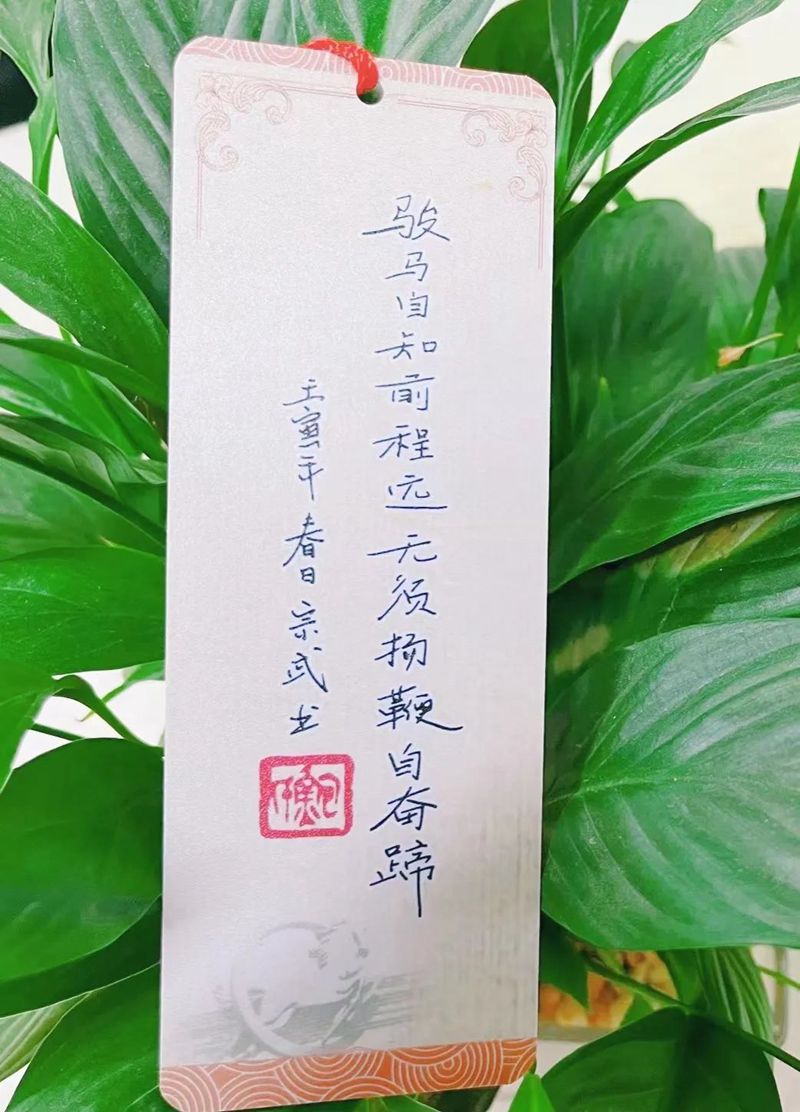 骏马自知前程远无须扬鞭自奋蹄
壬寅年春日宗武书